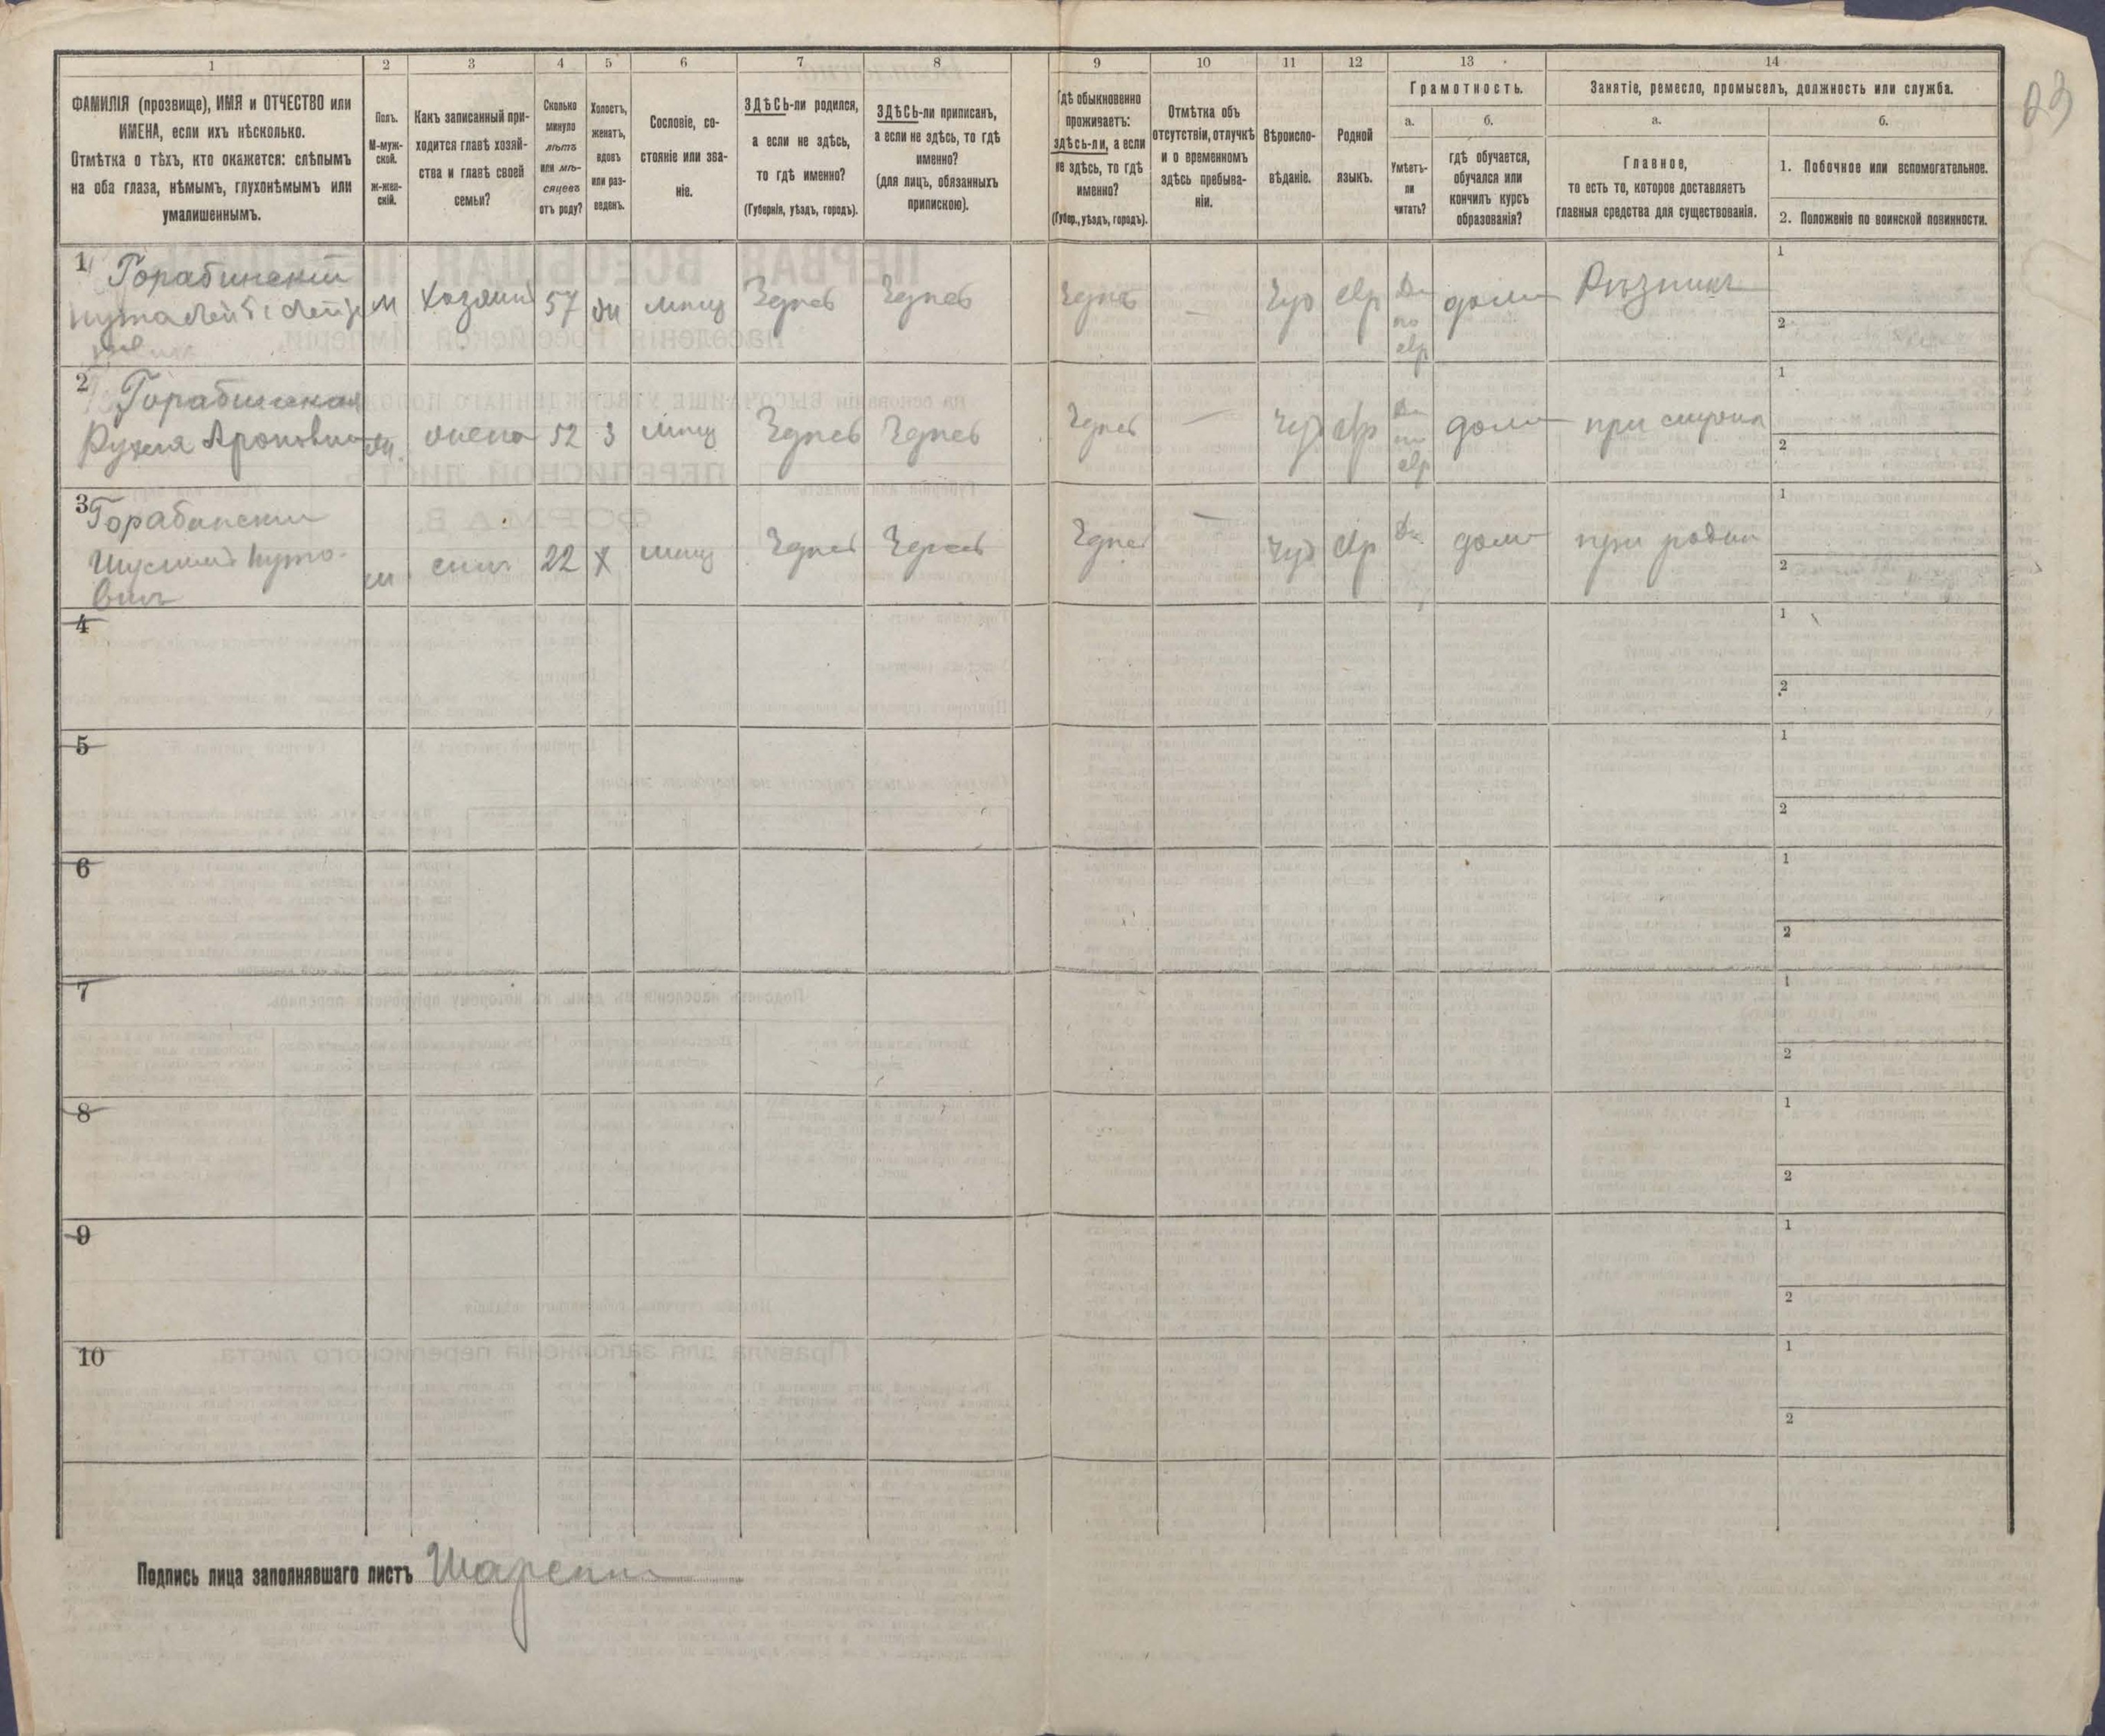 1 2 3 4 5 6 7 8 9 10 11 12 13 14
ФАМИЛІЯ (прозвище), ИМЯ и ОТЧЕСТВО или
ИМЕНА, если ихъ нѣсколько.
Отмѣтка о тѣхъ, кто окажется: слѣпымъ
на оба глаза, нѣмымъ, глухонѣмымъ или
умалишеннымъ.
Полъ.
М-муж-
ской.
ж-жен-
скій.
Какъ записанный при-
ходится главѣ хозяй-
ства и главѣ своей
семьи?
Сколько
минуло
лѣтъ
или мѣ-
сяцевъ
отъ роду?
Холостъ,
женатъ,
вдовъ
или раз-
веденъ.
Сословіе, со-
стояніе или зва-
ніе.
ЗДѢСЬ-ли родился,
а если не здѣсь,
то гдѣ именно?
(Губернія, уѣздъ, городъ).
ЗДѢСЬ-ли приписанъ,
а если не здѣсь, то гдѣ
именно?
(для лицъ, обязанныхъ
припискою).
Гдѣ обыкновенно
проживаетъ:
здѣсь-ли, а если
не здѣсь, то гдѣ
именно?
(Губер., уѣздъ, городъ).
Отмѣтка объ
отсутствіи, отлучкѣ
и о временномъ
здѣсь пребыва-
ніи.
Вѣроиспо-
вѣданіе.
Родной
языкъ.
Грамотность.
а.
Умѣетъ-
ли
читать?
б.
гдѣ обучается,
обучался или
кончилъ курсъ
образованія?
Занятіе, ремесло, промыселъ, должность или служба.
а.
Главное,
то есть то, которое доставляетъ
главныя средства для существованія.
б.
1. Побочное или вспомогательное.
2. Положеніе по воинской повинности.
23
1 Горабинскій
М хозяинъ 57 жн мѣщ Здѣсь Здѣсь Здѣсь — Іуд евр Да по евр дома Рѣзникъ 1
2
2 Горабинская
Рухля Ароновна ж. жена 52 З мѣщ Здѣсь Здѣсь Здѣсь — Іуд евр Да по евр дома при 1
2
3 Горабинскій
м сынъ 22 Х мѣщ Здѣсь Здѣсь Здѣсь — Іуд евр Да дома при 1
2
4 1
2
5 1
2
6 1
2
7 1
2
8 1
2
9 1
2
10 1
2
Подпись лица заполнявшаго листъ